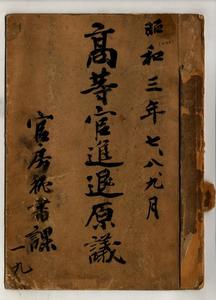 昭和三年七、八、九月
高等官進退原議
官房秘書課
一九